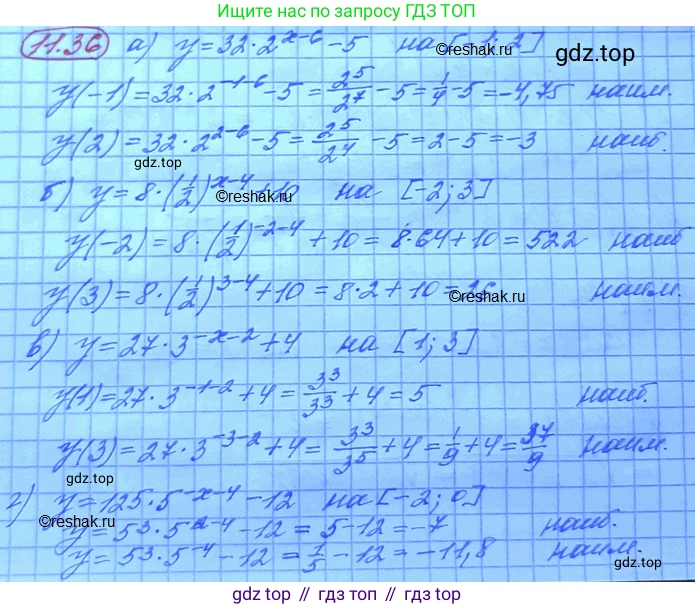 Ищите нас по запросу ГДЗ ТОП
11.36 а) y = 32 · 2^(x-6) - 5 на [-1; 2]
gdz.top
©reshak.ru
y(-1) = 32 · 2^(-1-6) - 5 = 2^5/2^7 - 5 = 1/4 - 5 = -4,75 наим.
y(2) = 32 · 2^(2-6) - 5 = 2^5/2^4 - 5 = 2 - 5 = -3 наиб.
gdz.top
б) y = 8 · (1/2)^(x-4) + 10 на [-2; 3]
©reshak.ru
y(-2) = 8 · (1/2)^(-2-4) + 10 = 8 · 64 + 10 = 522 наиб
y(3) = 8 · (1/2)^(3-4) + 10 = 8 · 2 + 10 = 26 наим.
©reshak.ru
в) y = 27 · 3^(-x-2) + 4 на [1; 3]
y(1) = 27 · 3^(-1-2) + 4 = 3^3/3^3 + 4 = 5 наиб.
y(3) = 27 · 3^(-3-2) + 4 = 3^3/3^5 + 4 = 1/9 + 4 = 37/9 наим.
gdz.top
г) y = 125 · 5^(-x-4) - 12 на [-2; 0]
©reshak.ru
y = 5^3 · 5^(2-4) - 12 = 5 - 12 = -7 наиб.
y = 5^3 · 5^(-4) - 12 = 1/5 - 12 = -11,8 наим.
gdz.top
gdz.top // гдз.топ // gdz.top